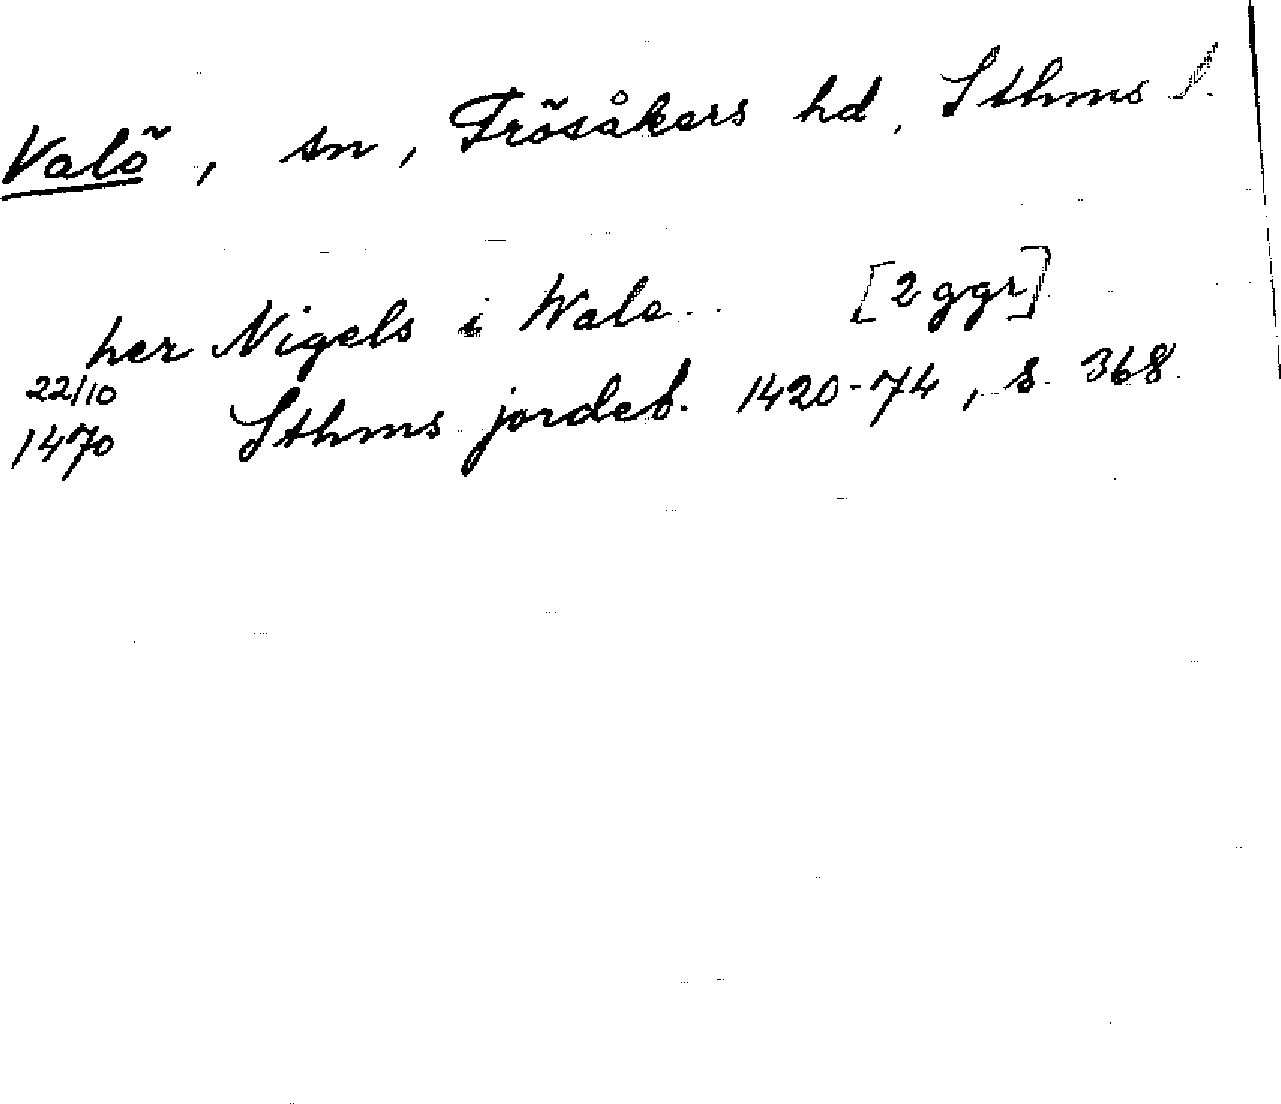 Valö, sn, Frösåkers hd, Sthms l.
her Nigels i Wala [2 ggr]
22/10
1470 Sthms jordeb. 1420-74, s. 368.